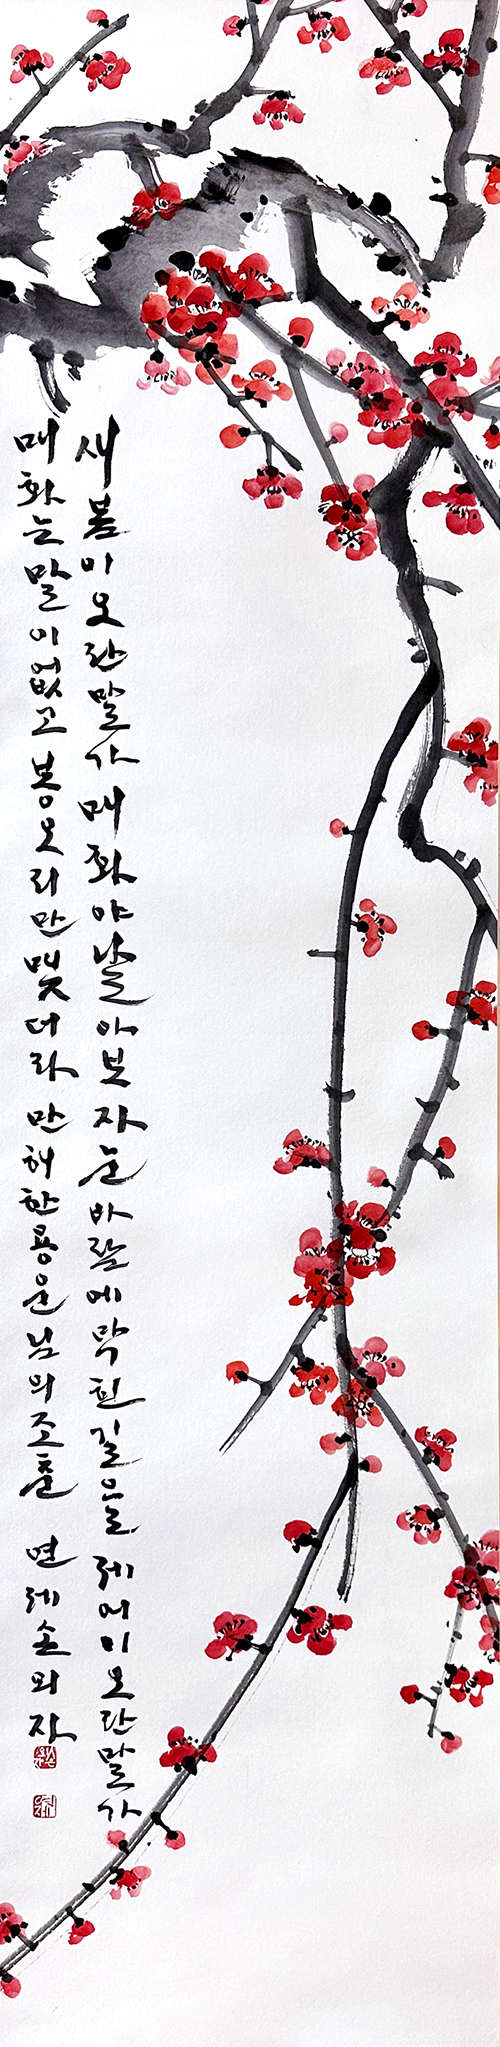 새봄이오란말가매화야날아보자눈바람에막힌길을제어이오단말가
매화는말이없고봉오리만맺더라만해한용운님의조춘 손외자